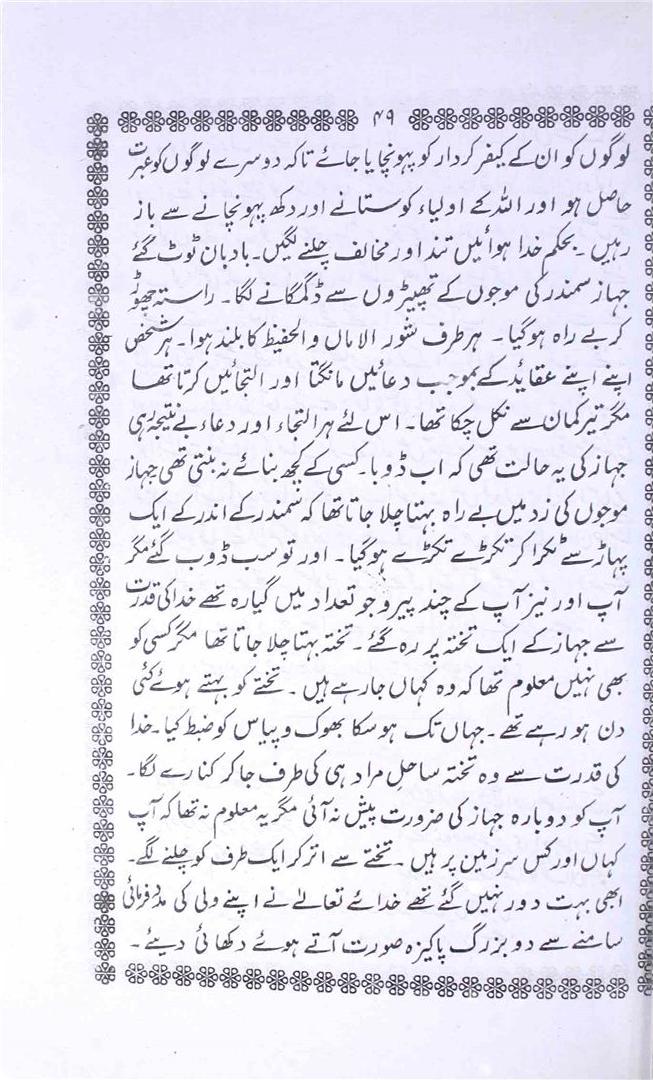 ۴۹
لوگوں کو ان کے کیفر کردار کو پہونچایا جائے تاکہ دوسرے لوگوں کو عبرت
حاصل ہو اور اللہ کے اولیاء کو ستانے اور دکھ پہونچانے سے باز
رہیں ۔ بحکم خدا ہوائیں تند اور مخالف چلنے لگیں۔ بادبان ٹوٹ گئے
جہاز سمندر کی موجوں کے تھپیڑوں سے ڈگمگانے لگا۔ راستہ چھوڑ
کر بے راہ ہوگیا ۔ ہر طرف شور الاماں والحفیظ کا بلند ہوا۔ ہر شخص
اپنے اپنے عقاید کے بموجب دعائیں مانگتا اور التجائیں کرتا تھا
مگر تیر کمان سے نکل چکا تھا۔ اس لئے ہر التجاء اور دعاء بے نتیجہ رہی
جہاز کی یہ حالت تھی کہ اب ڈوبا۔ کسی کے کچھ بنائے نہ بنتی تھی جہاز
موجوں کی زد میں بے راہ بہتا چلا جاتا تھا کہ سمندر کے اندر کے ایک
پہاڑ سے ٹکرا کر ٹکڑے ٹکڑے ہوگیا ۔ اور تو سب ڈوب گئے مگر
آپ اور نیز آپ کے چند پیرو جو تعداد میں گیارہ تھے خدا کی قدرت
سے جہاز کے ایک تختہ پر رہ گئے ۔ تختہ بہتا چلا جاتا تھا مگر کسی کو
بھی نہیں معلوم تھا کہ وہ کہاں جا رہے ہیں ۔ تختے کو بہتے ہوئے کئی
دن ہو رہے تھے ۔ جہاں تک ہو سکا بھوک و پیاس کو ضبط کیا۔ خدا
کی قدرت سے وہ تختہ ساحل مراد ہی کی طرف جا کر کنارے لگا۔
آپ کو دوبارہ جہاز کی ضرورت پیش نہ آئی مگر یہ معلوم نہ تھا کہ آپ
کہاں اور کس سرزمین پر ہیں ۔ تختے سے اتر کر ایک طرف کو چلنے لگے۔
ابھی بہت دور نہیں گئے تھے خدائے تعالےٰ نے اپنے ولی کی مدد فرمائی
سامنے سے دو بزرگ پاکیزہ صورت آتے ہوئے دکھائی دیئے ۔